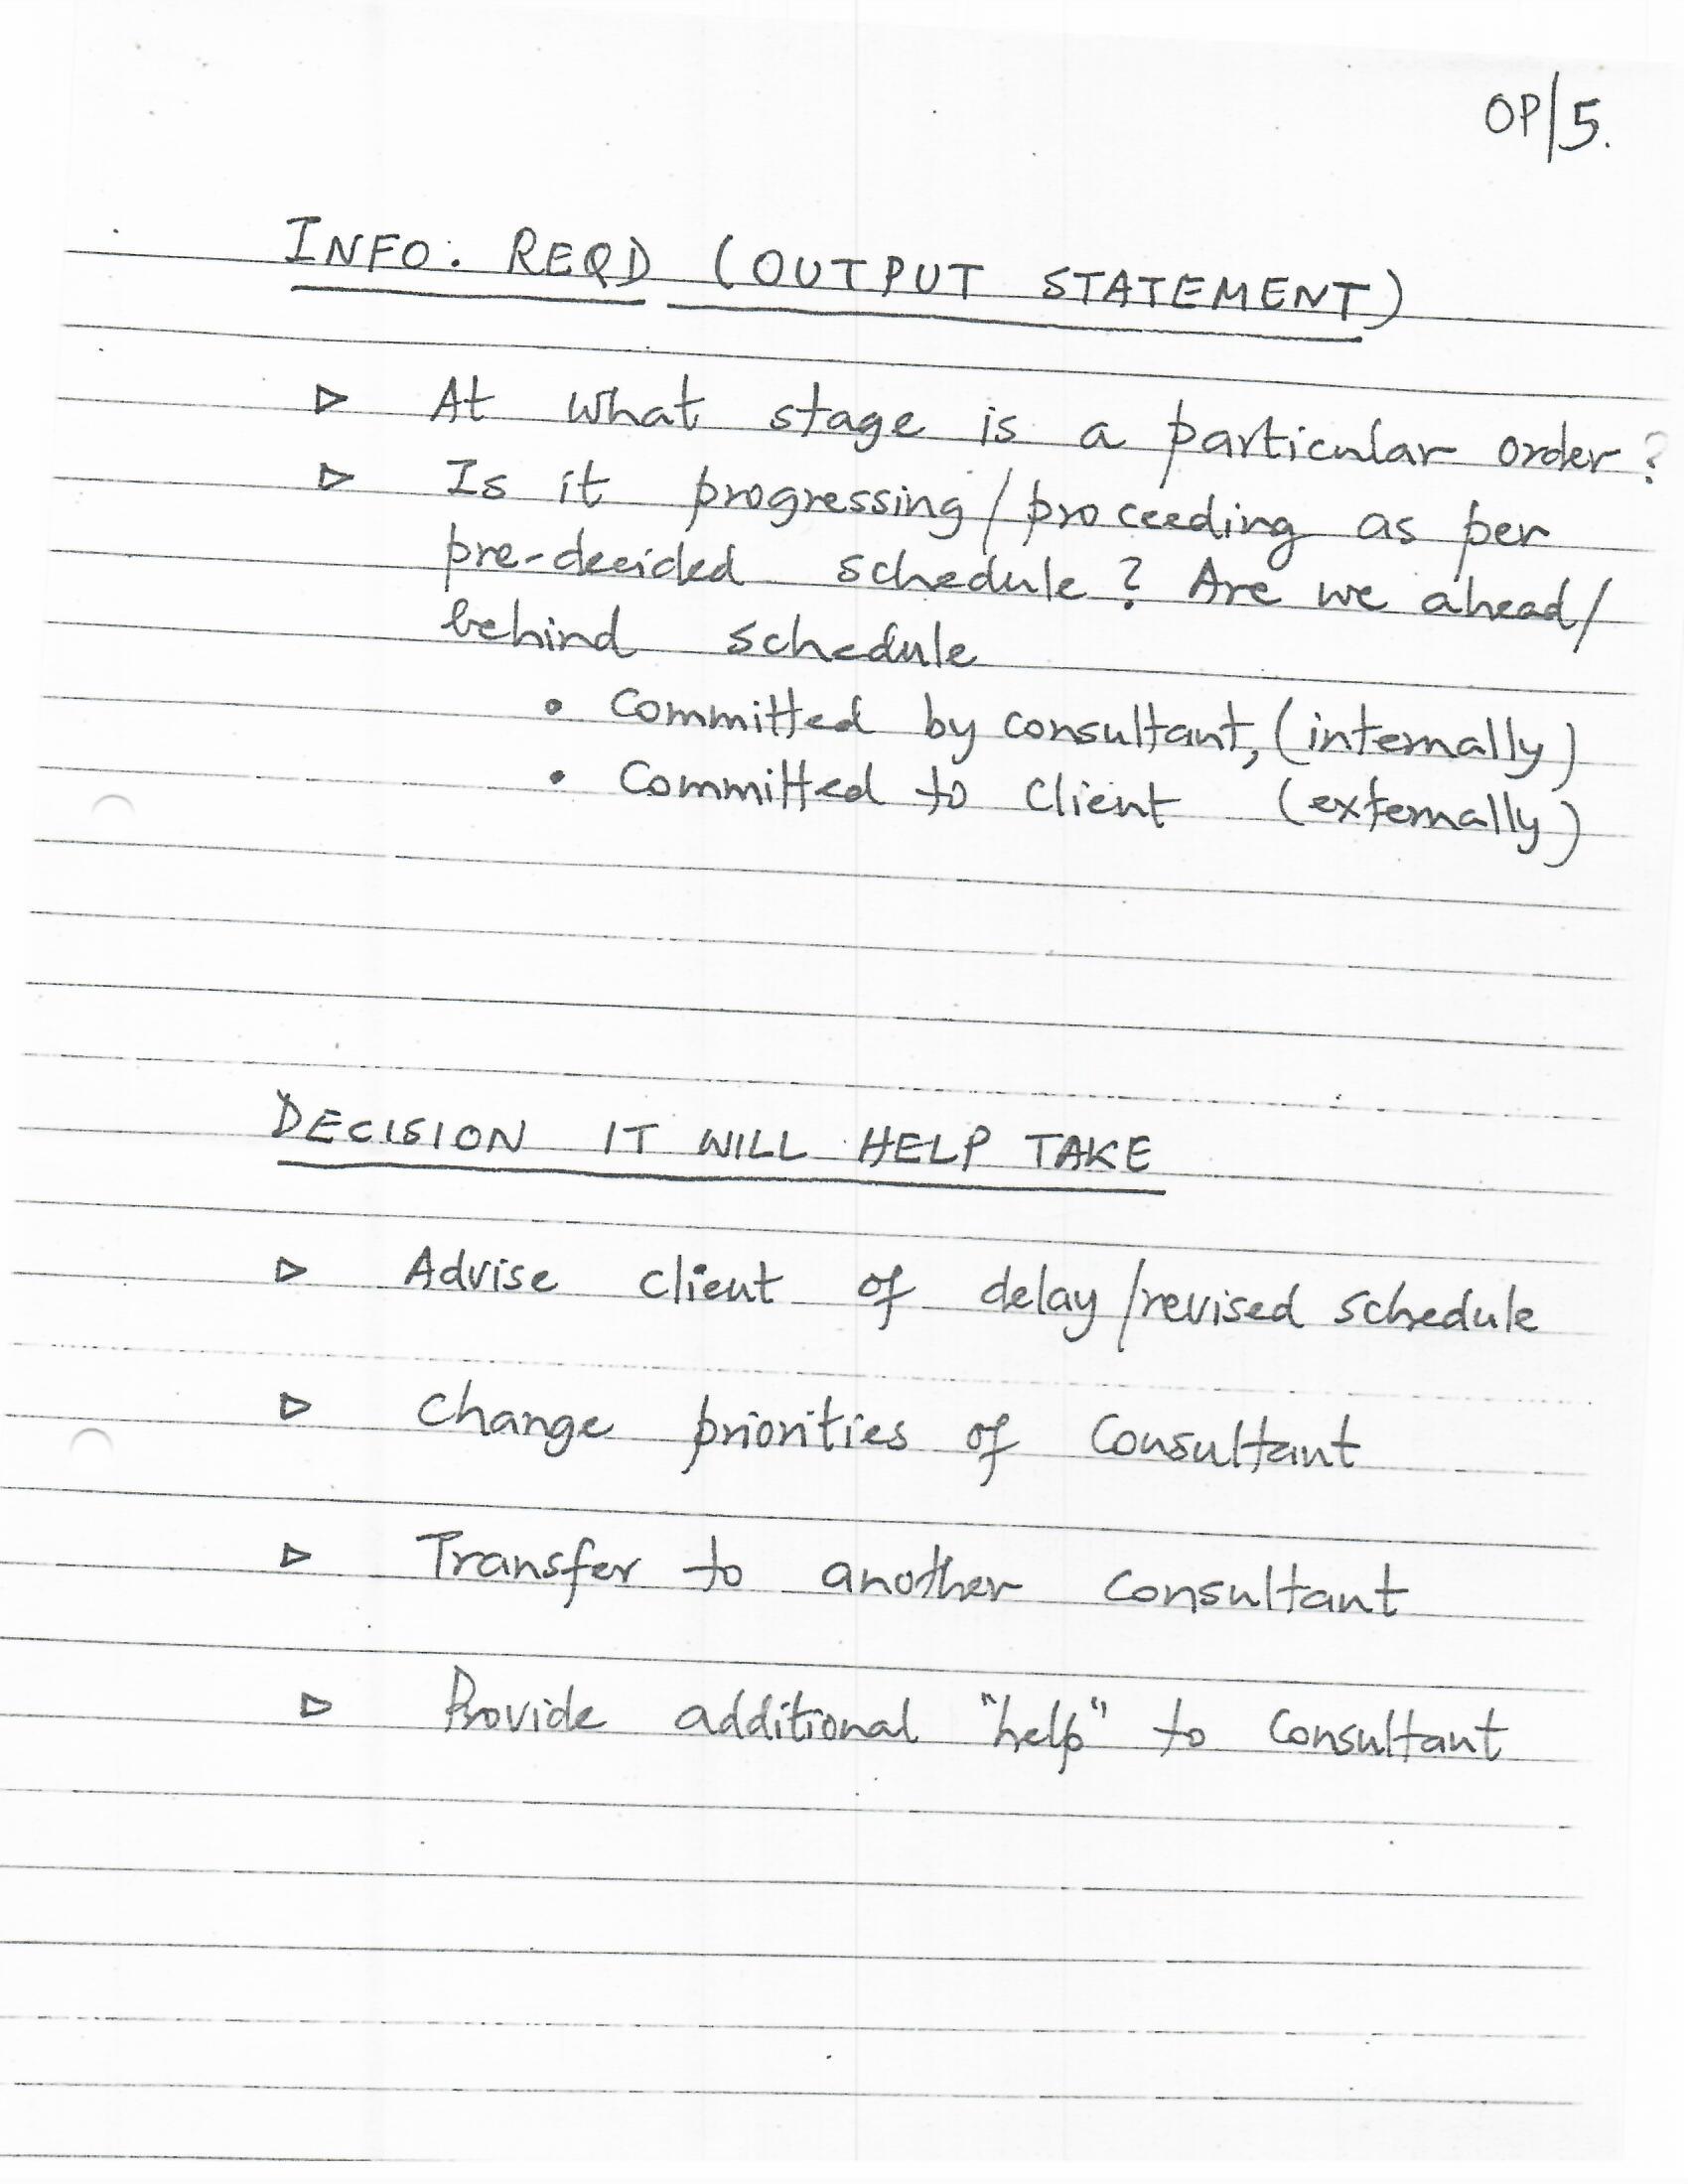 OP/5.
INFO: REQD (OUTPUT STATEMENT)
▷ At what stage is a particular order?
▷ Is it progressing/proceeding as per
pre-decided schedule? Are we ahead/
behind schedule
• Committed by consultant, (internally)
• Committed to Client (externally)
DECISION IT WILL HELP TAKE
▷ Advise client of delay/revised schedule
▷ Change priorities of Consultant
▷ Transfer to another Consultant
▷ Provide additional "help" to Consultant